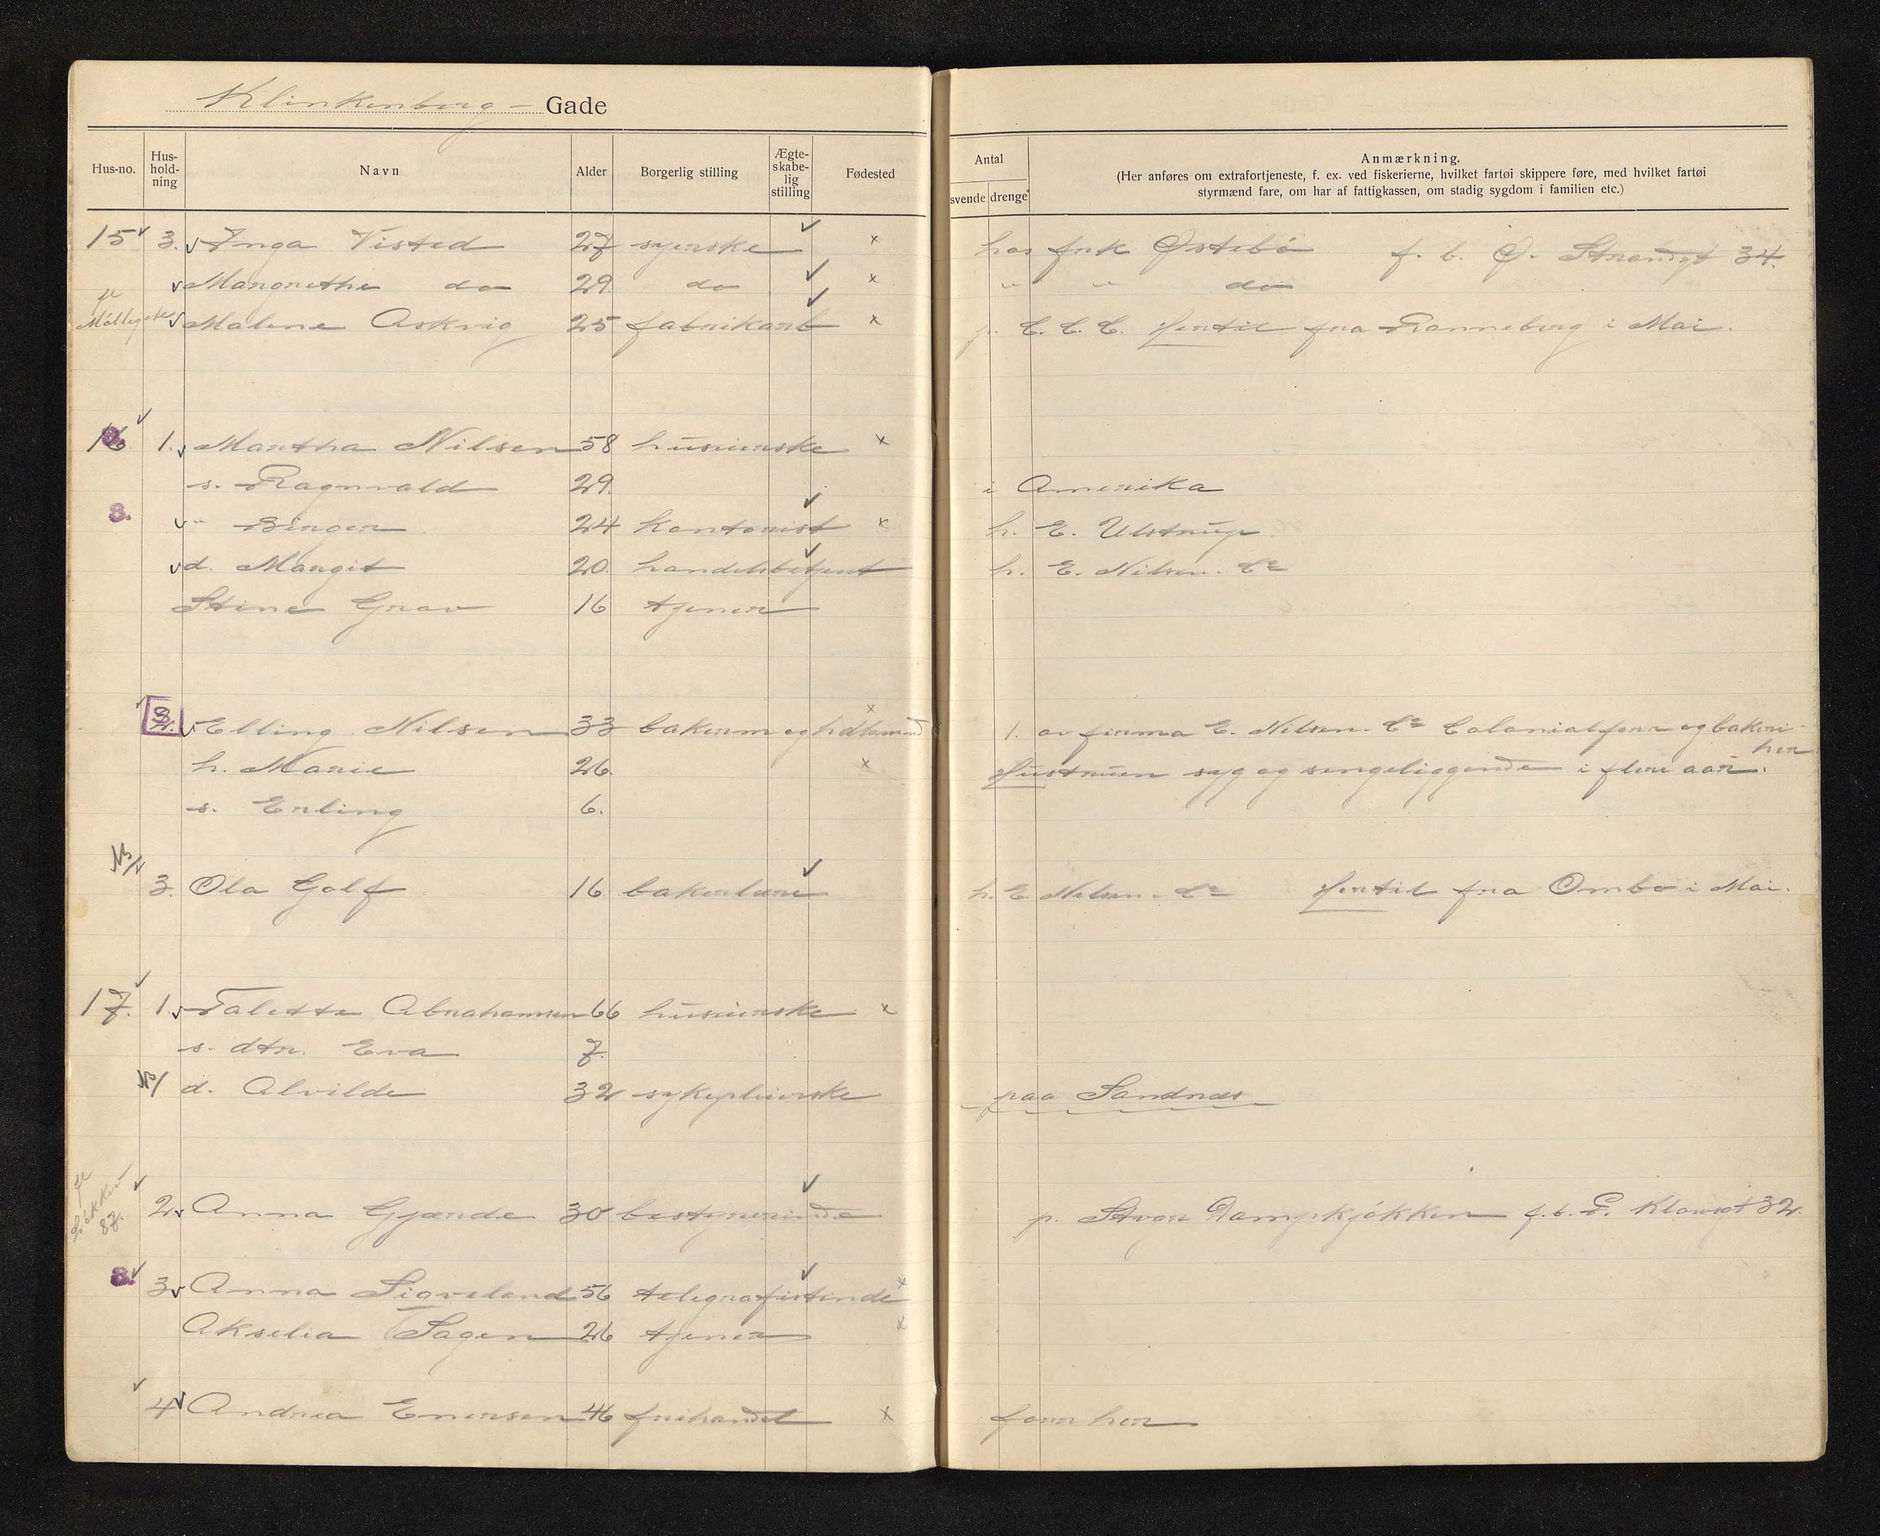 Klinkenberg - Gade
Hus-no. Hus-hold-ning Navn Alder Borgerlig stilling Ægte-skabe-lig stilling Fødested Antal svende drenge Anmærkning.
(Her anføres om extrafortjeneste, f. ex. ved fiskerierne, hvilket fartøi skippere føre, med hvilket fartøi
styrmænd fare, om har af fattigkassen, om stadig sygdom i familien etc.)
15 3. Inga Visted 27 syerske x hos frk Østebö f. b. Ø. Strandgt 34.
Margrethe do 29 do x " " do
Malene Askvig 25 fabrikarb x p. C. C. C. Hertil fra Ranneberg i Mai.
16 1. Martha Nilsen 58 huseierske x
s. Ragnvald 29. i Amerika
8. " Birger 24 kontorist x h. E. Ulstrup
d. Margit 20. handelsbetjent h. E. Nilsen. Co
Stine Grav 16 tjener
Elling Nilsen 33 bakerm og hdlsmand x 1. av firma E. Nilsen. Co Colonialforr og bakeri her
h. Marie 26. x Hustruen syg og sengeliggende i flere aar.
s. Erling 6.
3. Ola Golf 16 bakerlære h. E. Nilsen. Co Hertil fra Ombo i Mai.
17. 1. Talette Abrahamsen 66 huseierske x
s. dtr. Eva 7.
d. Alvilde 32 sykepleierske paa Sandnæs
2. Anna Gjærde 30 bestyrerinde p. Stvgr Dampkjøkken f. b. P. Klowsgt 32.
8. 3 Anna Sigveland 56 telegrafistinde x
Akselia Sagen 26 tjener x
4 Andrea Enersen 46 frihandel x forr her